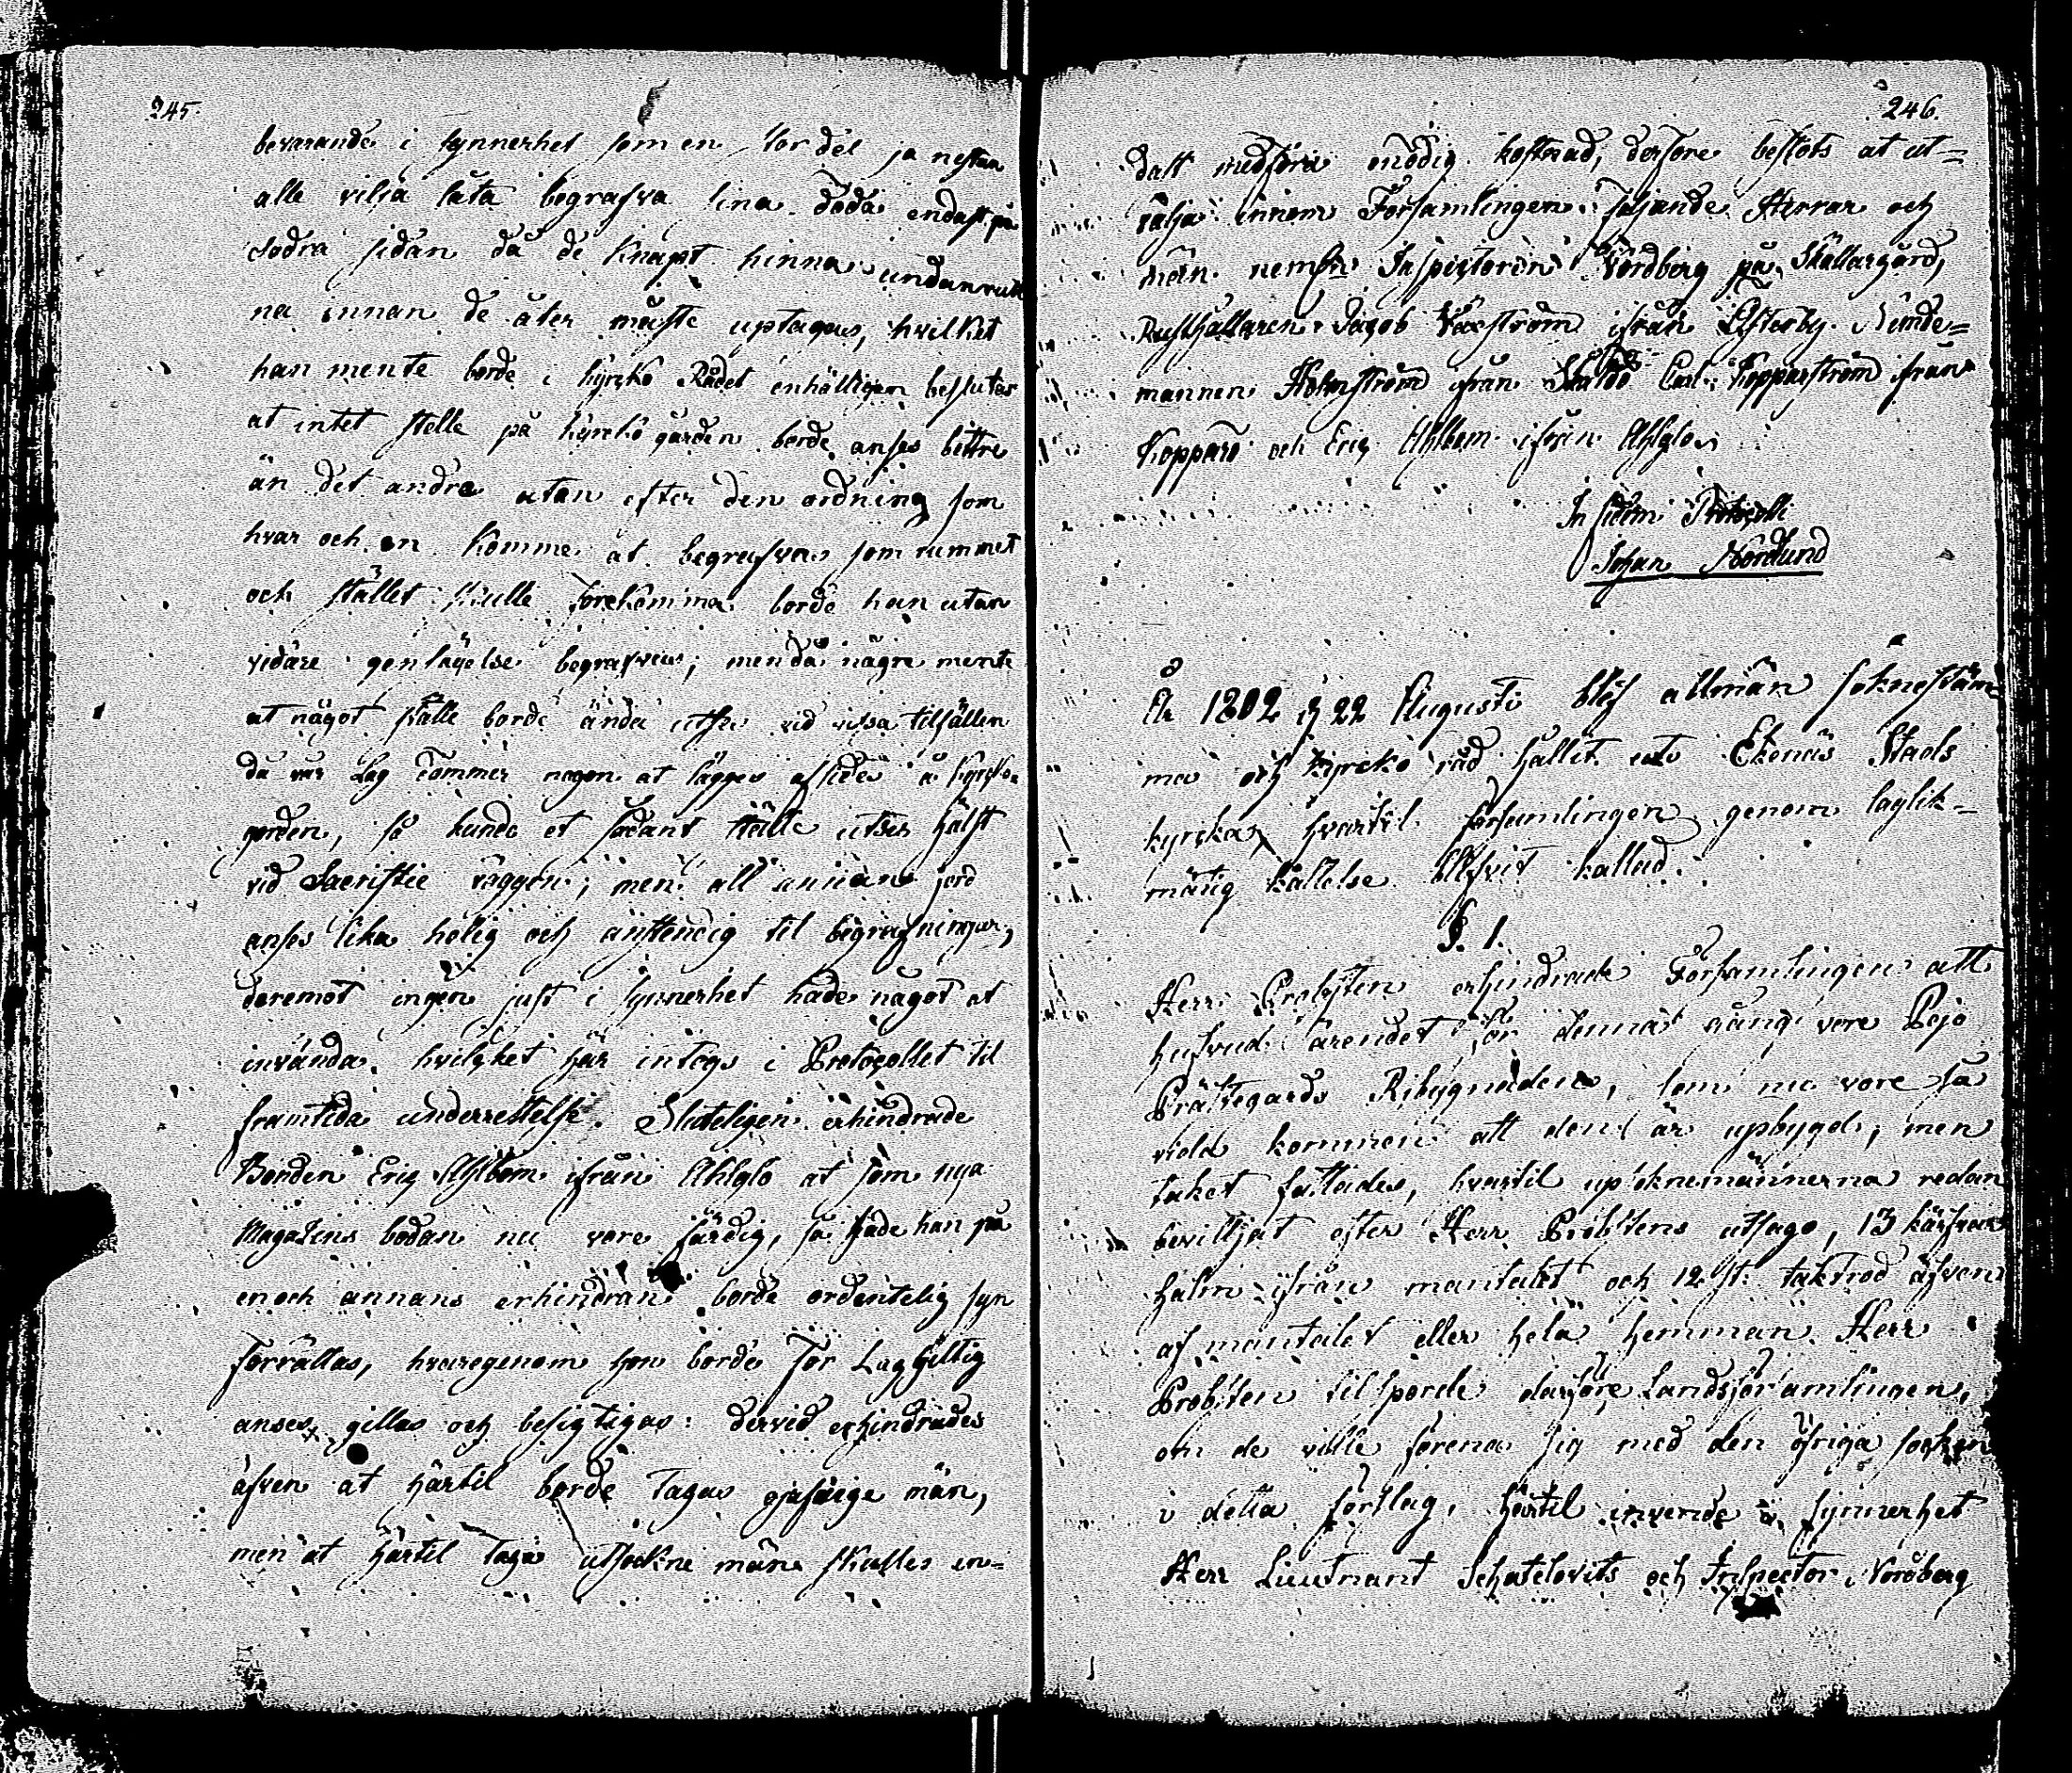 245.
bevarande i synnerhet som en stor del ja nestan
alle vilja låta begrafva sina döda endast på
södra sidan då de knapt hinna undanrut
na innan de åter måste uptagas, hvilket
han mente borde i Kyrcko Rådet enhälligen beslutas
at intet stelle på Kyrckogården borde anses bettre
än det andra utan efter den ordning som
hvar och en komme at begrafvas som rummet
och stället skulle förekomma borde han utan
vidare gensäyelse begrafvas; men då någre mente
at något ställe borde ändå utses vid vissa tilfällen
då vår Lag dömmer någon at läggas afsides å Kyrcko
gården, så kunde et sådant ställe utses hälst
vid Sacristie väggen; men all annan jord
anses lika helig och anstendig til begrafningar,
daremot ingen just i synnerhet hade något at
invända, hvilcket här intogs i Protocollet til
framtida underrettelse. Sluteligen erhindrade
Bonden Eric Ahlbom ifrån Ahlglo at som nya
Magazins bodan nu vore färdig, så både han på
en och annans erhindran borde ordentelig syn
förrättas, hvarigenom hon borde för Laggiltig
anses, gillas och besigtigas: dervid erhindrades
äfven at härtil borde tagas ojäfvige män,
men at härtil taga utsockne män skulle en-
246.
dast medföra onödig kostnad, derföre beslöts at ut-
välja innom Församlingen följande Herrar och
män nemln Inspectoren Nordberg på Skållargård,
Rusthållaren Jacob Väström ifrån Österby Nämde-
mannen Holmström från Skåldö Carl Kopparström ifrån
Kopparö och Eric Ahlbom ifrån Ahlglo.
In fidem Protocolli
Johan Nordlund
År 1802 d 22 Augusti blef allmän soknestäm
ma och Kyrcko råd hållit uti Ekenäs Stads
kyrcka, hvartil församlingen genom laglik-
mätig kallelse blifvit kallad.
§. 1.
Herr Probsten erhindrade Församlingen att
hufvud ärendet för denna gång vore Pojo
Prästegårds Ribygnaden, som nu vore så
vida kommen att den är upbygd, men
taket fattades, hvartil upsoknemännerna redan
beviljat efter Herr Probstens utsago, 13 kärfvar
halm ifrån mantalet och 12 st: takrod äfven
af mantalet eller hela hemman. Herr
Probsten tilsporde darföre Landsförsamlingen,
om de ville förena sig med den öfriga socken
i detta förslag, härtil invende i synnerhet
Herr Lieutnant Schatelovits och Inspector Nordberg